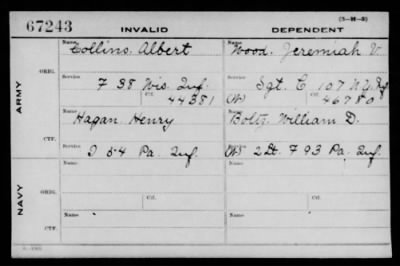 67243
INVALID
DEPENDENT
(3-H-3)
ARMY
NAVY
ORIG.
Name
Collins, Albert
Name
Wood, Jeremiah V.
Service
F 38 Wis. Inf.
Ctf.
44381
Service
Sgt. C 107 N.Y. Inf
(W)
Ctf.
46780
CTF.
Name
Hagan, Henry
Name
Boltz, William D.
I 54 Pa. Inf.
(W) 2 Lt. F 93 Pa. Inf.
ORIG.
Name
Name
Service
Ctf.
Service
Ctf.
CTF.
Name
Name